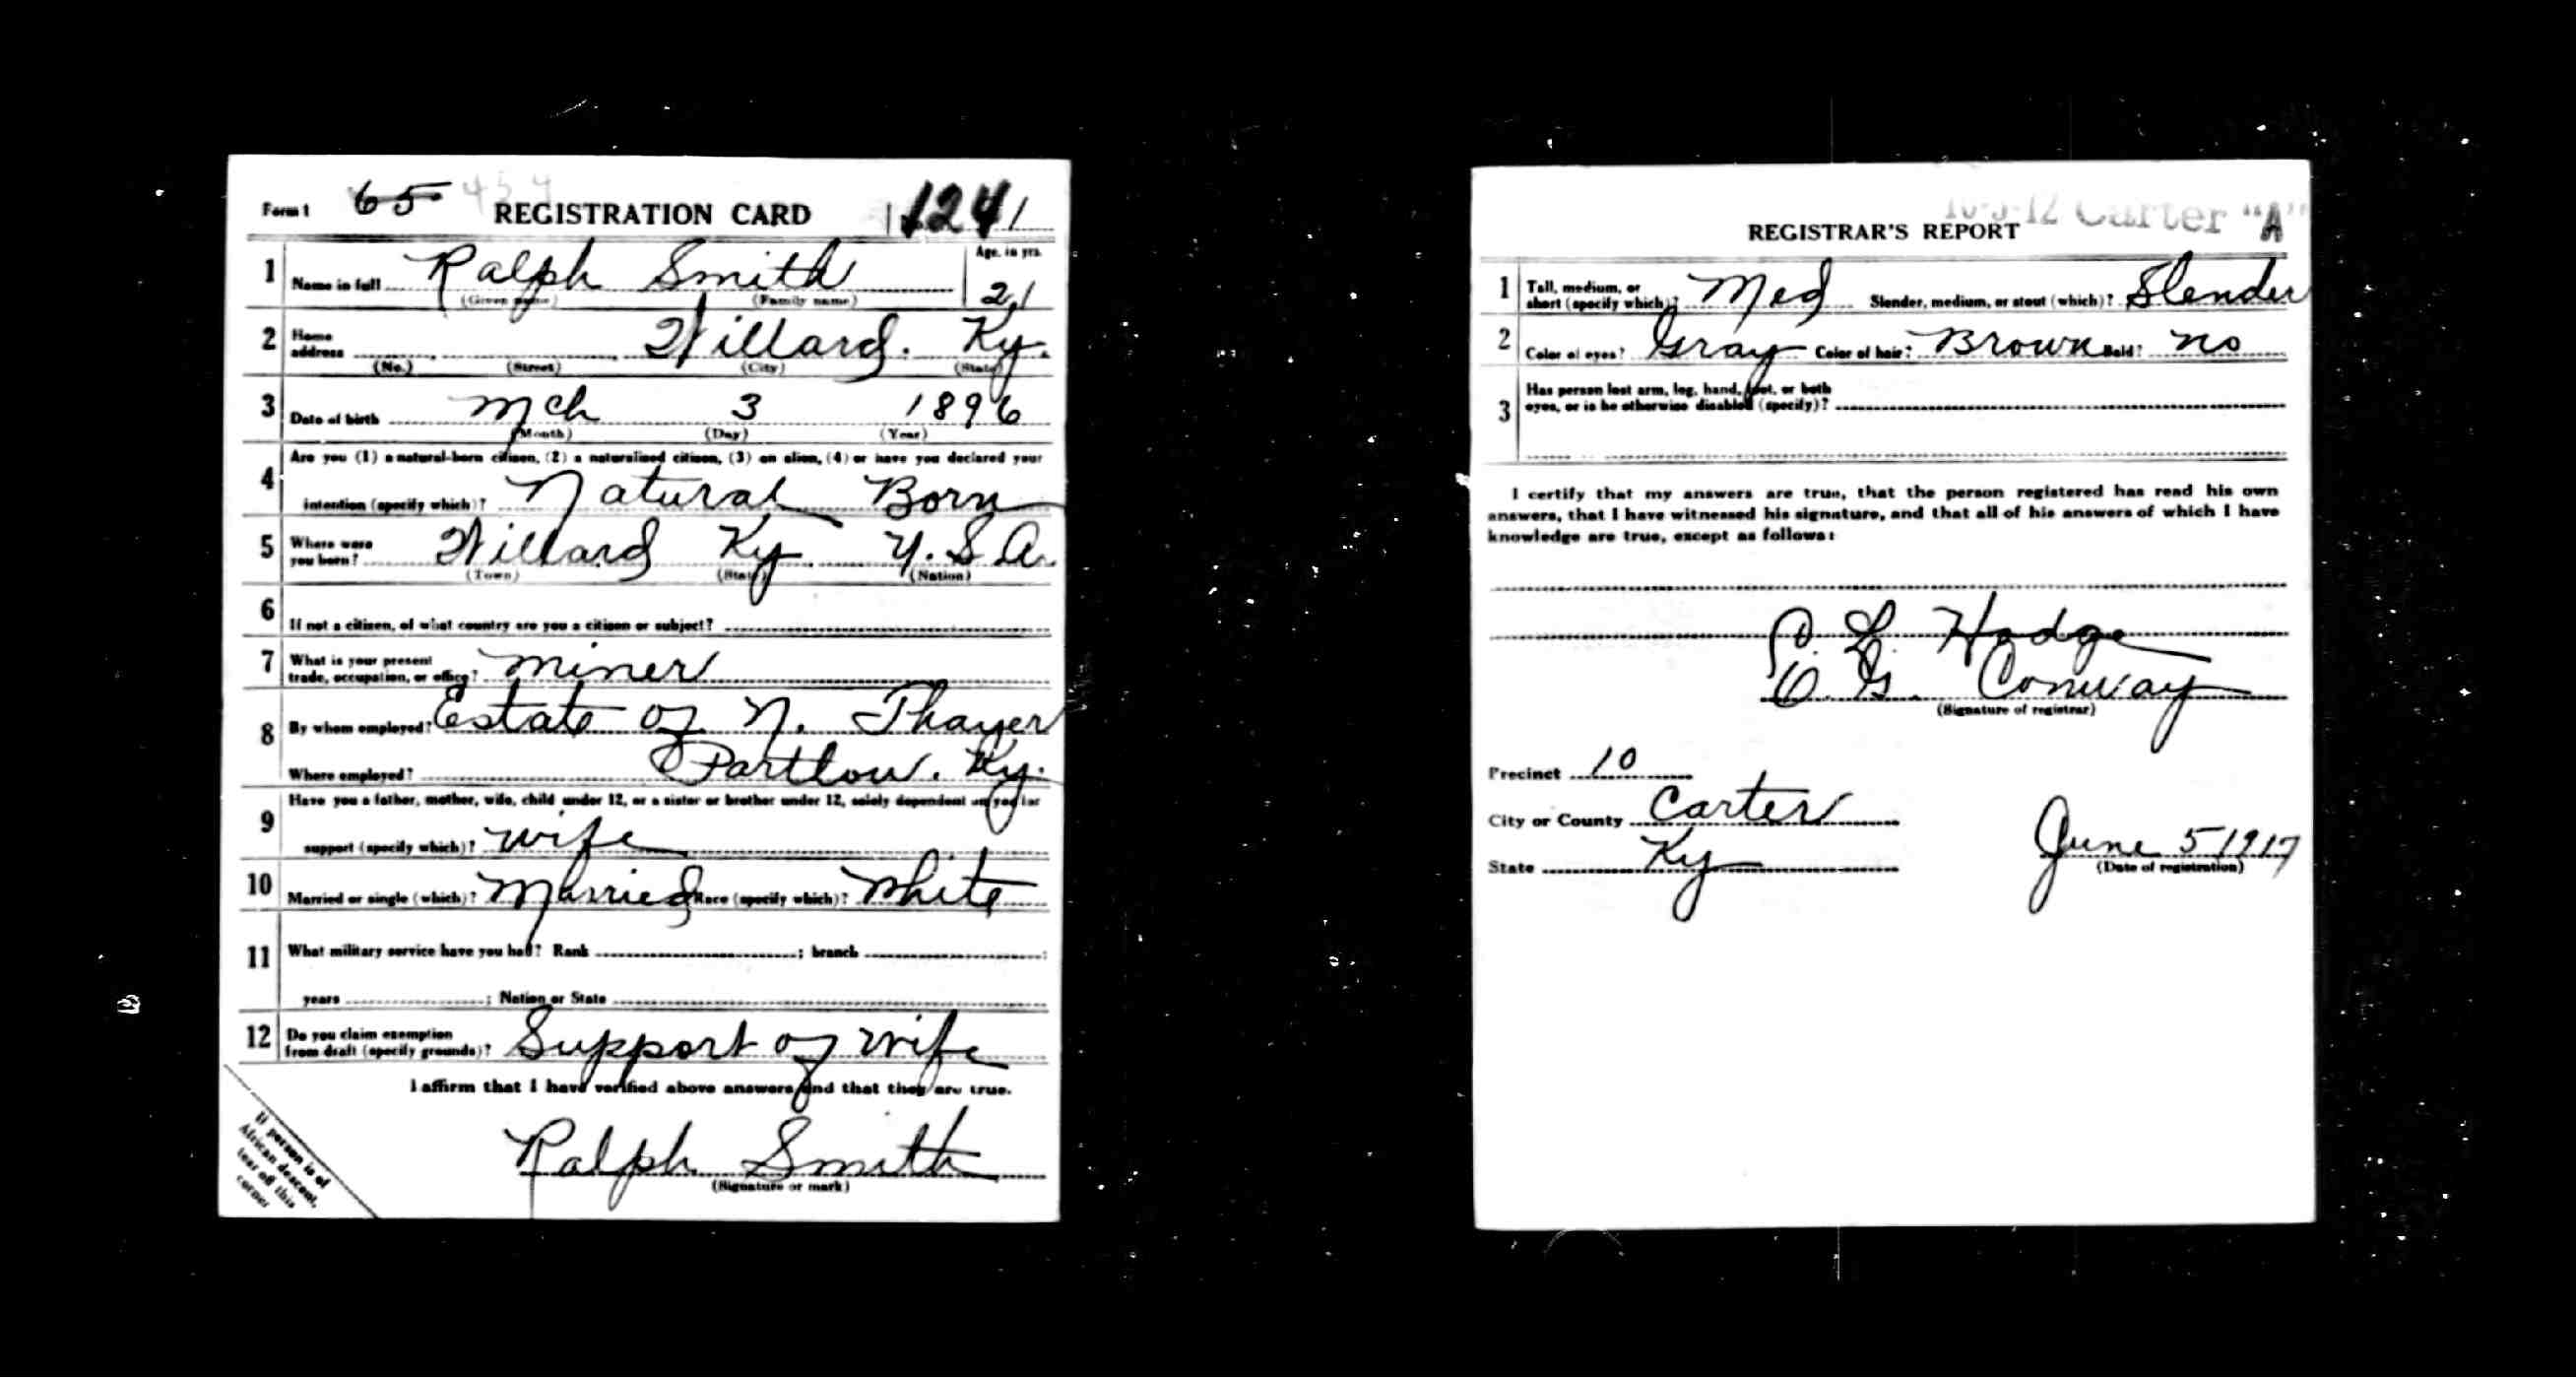 Form 1 65 454 REGISTRATION CARD 1241
1 Name in full Ralph Smith Age, in yrs. 21
(Given name) (Family name)
2 Home address Willard. Ky.
(No.) (Street) (City) (State)
3 Date of birth Mch 3 1896
(Month) (Day) (Year)
4 Are you (1) a natural-born citizen, (2) a naturalized citizen, (3) an alien, (4) or have you declared your
intention (specify which)? Natural Born
5 Where were you born? Willard Ky U.S.A.
(Town) (State) (Nation)
6 If not a citizen, of what country are you a citizen or subject?
7 What is your present trade, occupation, or office? Miner
8 By whom employed? Estate of N. Thayer
Where employed? Partlow. Ky.
9 Have you a father, mother, wife, child under 12, or a sister or brother under 12, solely dependent on you for
support (specify which)? Wife
10 Married or single (which)? Married Race (specify which)? White
11 What military service have you had? Rank ; branch ;
years ; Nation or State
12 Do you claim exemption from draft (specify grounds)? Support of Wife
I affirm that I have verified above answers and that they are true.
Ralph Smith
(Signature or mark)
If person is of
African descent,
tear off this
corner
16-3-12 Carter "A"
REGISTRAR'S REPORT
1 Tall, medium, or short (specify which)? Med Slender, medium, or stout (which)? Slender
2 Color of eyes? Gray Color of hair? Brown Bald? No
3 Has person lost arm, leg, hand, foot, or both
eyes, or is he otherwise disabled (specify)?
I certify that my answers are true, that the person registered has read his own
answers, that I have witnessed his signature, and that all of his answers of which I have
knowledge are true, except as follows:
L. Hodge
G. Conway
(Signature of registrar)
Precinct 10
City or County Carter
State Ky
June 5 1917
(Date of registration)